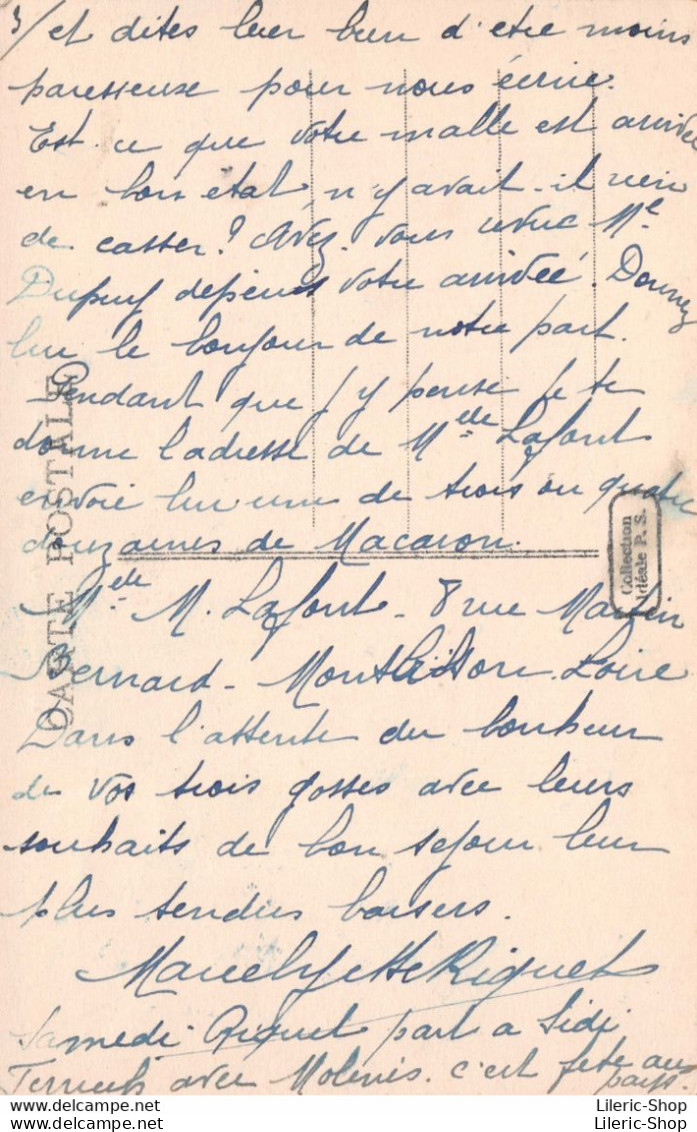 3/ et dites leur bien d'etre moins
paresseuse pour nous écrire.
Est-ce que votre malle est arrivée
en bon etat n'y avait-il rien
de casser? Avez-vous revue Me
Dupuy depuis votre arrivée. Donnez
lui le bonjour de notre part.
Pendant que j'y pense je te
donne l'adresse de Melle Lafont
envoie lui une de trois ou quatre
douzaines de Macaron.
Melle M. Lafont - 8 rue Martin
Bernard - Montbrison. Loire
Dans l'attente du bonheur
de vos trois gosses avec leurs
souhaits de bon sejour leur
plus tendres baisers.
Riquet
Samedi Riquet part a Sidi
avec c'est fete au
pays.
CARTE POSTALE
Collection
Idéale P. S.
Lileric-Shop
Lileric-Shop
Lileric-Shop
Lileric-Shop